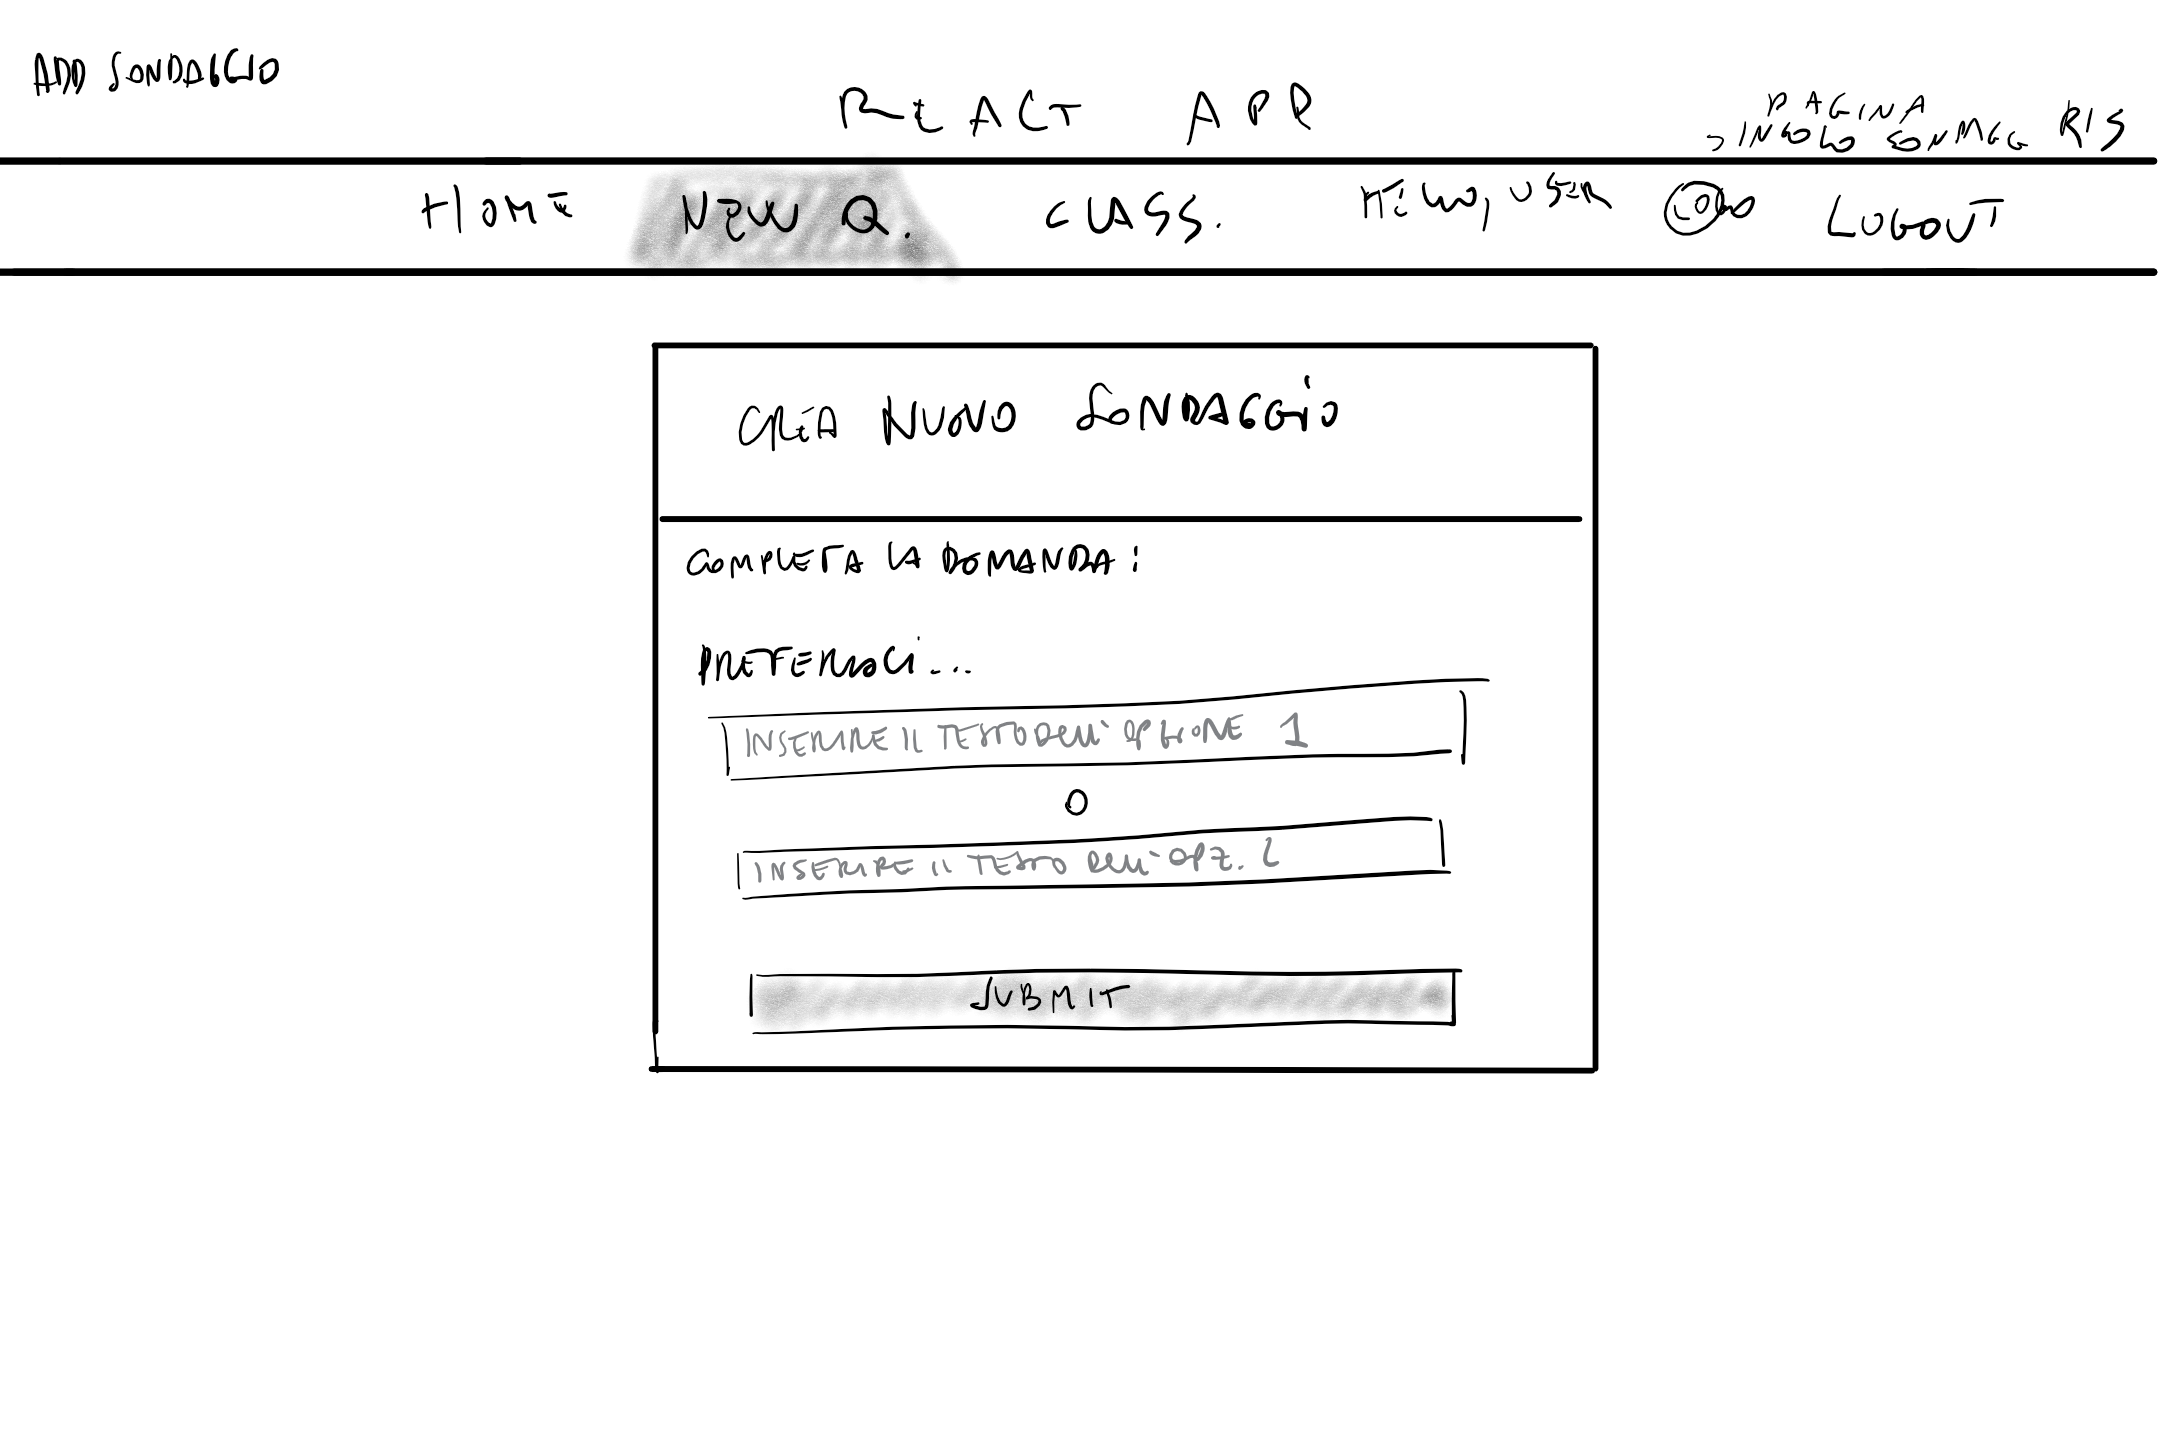 ADD SONDAGGIO
REACT APP
PAGINA
SINGOLO SONDAGG RIS
HOME NEW Q. CLASS. HELLO, USER LOGO LOGOUT
CREA NUOVO SONDAGGIO
COMPLETA LA DOMANDA:
PREFERISCI...
INSERIRE IL TESTO DELL'OPZIONE 1
O
INSERIRE IL TESTO DELL'OPZ. 2
SUBMIT